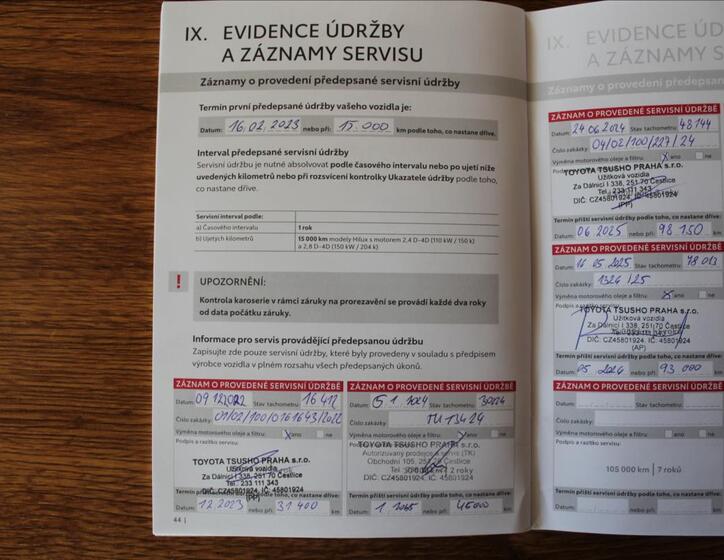 IX. EVIDENCE ÚDRŽBY
A ZÁZNAMY SERVISU
Záznamy o provedení předepsané servisní údržby
Termín první předepsané údržby vašeho vozidla je:
Datum: 16.02.2023 nebo při: 15.000 km podle toho, co nastane dříve.
Interval předepsané servisní údržby
Servisní údržbu je nutné absolvovat podle časového intervalu nebo po ujetí níže
uvedených kilometrů nebo při rozsvícení kontrolky Ukazatele údržby podle toho,
co nastane dříve.
Servisní interval podle:
a) Časového intervalu 1 rok
b) Ujetých kilometrů 15 000 km modely Hilux s motorem 2,4 D-4D (110 kW / 150 k)
a 2,8 D-4D (150 kW / 204 k)
! UPOZORNĚNÍ:
Kontrola karoserie v rámci záruky na prorezavění se provádí každé dva roky
od data počátku záruky.
Informace pro servis provádějící předepsanou údržbu
Zapisujte zde pouze servisní údržby, které byly provedeny v souladu s předpisem
výrobce vozidla v plném rozsahu všech předepsaných úkonů.
ZÁZNAM O PROVEDENÉ SERVISNÍ ÚDRŽBĚ
Datum: 09 12 2022 Stav tachometru: 16 412
Číslo zakázky: 01/02/100/0161643/2022
Výměna motorového oleje a filtru: X ano ne
Podpis a razítko servisu:
TOYOTA TSUSHO PRAHA s.r.o.
Užitková vozidla
Za Dálnicí I 338, 251 70 Čestlice
Tel. 233 111 343
DIČ: CZ45801924, IČ: 45801924
(PP)
Termín příští servisní údržby podle toho, co nastane dříve:
Datum: 12 2023 nebo při: 31 400 km
44 |
ZÁZNAM O PROVEDENÉ SERVISNÍ ÚDRŽBĚ
Datum: 5 1. 2024 Stav tachometru:
Číslo zakázky:
Výměna motorového oleje a filtru: ano ne
Podpis a razítko servisu:
TOYOTA TSUSHO PRAHA s.r.o.
Autorizovaný prodejce a servis (TK)
Obchodní 105, 251 70 Čestlice
2 roky
DIČ: CZ45801924, IČ: 45801924
Termín příští servisní údržby podle toho, co nastane dříve:
Datum: 1 2025 nebo při: 45000 km
IX. EVIDENCE Ú
A ZÁZNAMY
Záznamy o provedení předepsan
ZÁZNAM O PROVEDENÉ SERVISNÍ ÚDRŽBĚ
Datum: 24 06 2024 Stav tachometru: 48144
Číslo zakázky: 04/02/100/227/24
Výměna motorového oleje a filtru: X ano ne
TOYOTA TSUSHO PRAHA s.r.o.
Užitková vozidla
Za Dálnicí I 338, 251 70 Čestlice
Tel. 233 111 343
DIČ: CZ45801924, IČ: 45801924
(PP)
Termín příští servisní údržby podle toho, co nastane dříve:
Datum: 06 2025 nebo při: 98 150 km
ZÁZNAM O PROVEDENÉ SERVISNÍ ÚDRŽBĚ
Datum: 05 2025 Stav tachometru: 78 013
Číslo zakázky: 1324 /25
Výměna motorového oleje a filtru: X ano ne
TOYOTA TSUSHO PRAHA s.r.o.
Užitková vozidla
Za Dálnicí I 338, 251 70 Čestlice
DIČ: CZ45801924, IČ: 45801924
(AP)
Termín příští servisní údržby podle toho, co nastane dříve:
Datum: 05. nebo při: 93 000 km
ZÁZNAM O PROVEDENÉ SERVISNÍ ÚDRŽBĚ
Datum: Stav tachometru:
Číslo zakázky:
Výměna motorového oleje a filtru: ano ne
Podpis a razítko servisu:
105 000 km | 7 roků
Termín příští servisní údržby podle toho, co nastane dříve:
Datum: nebo při: km